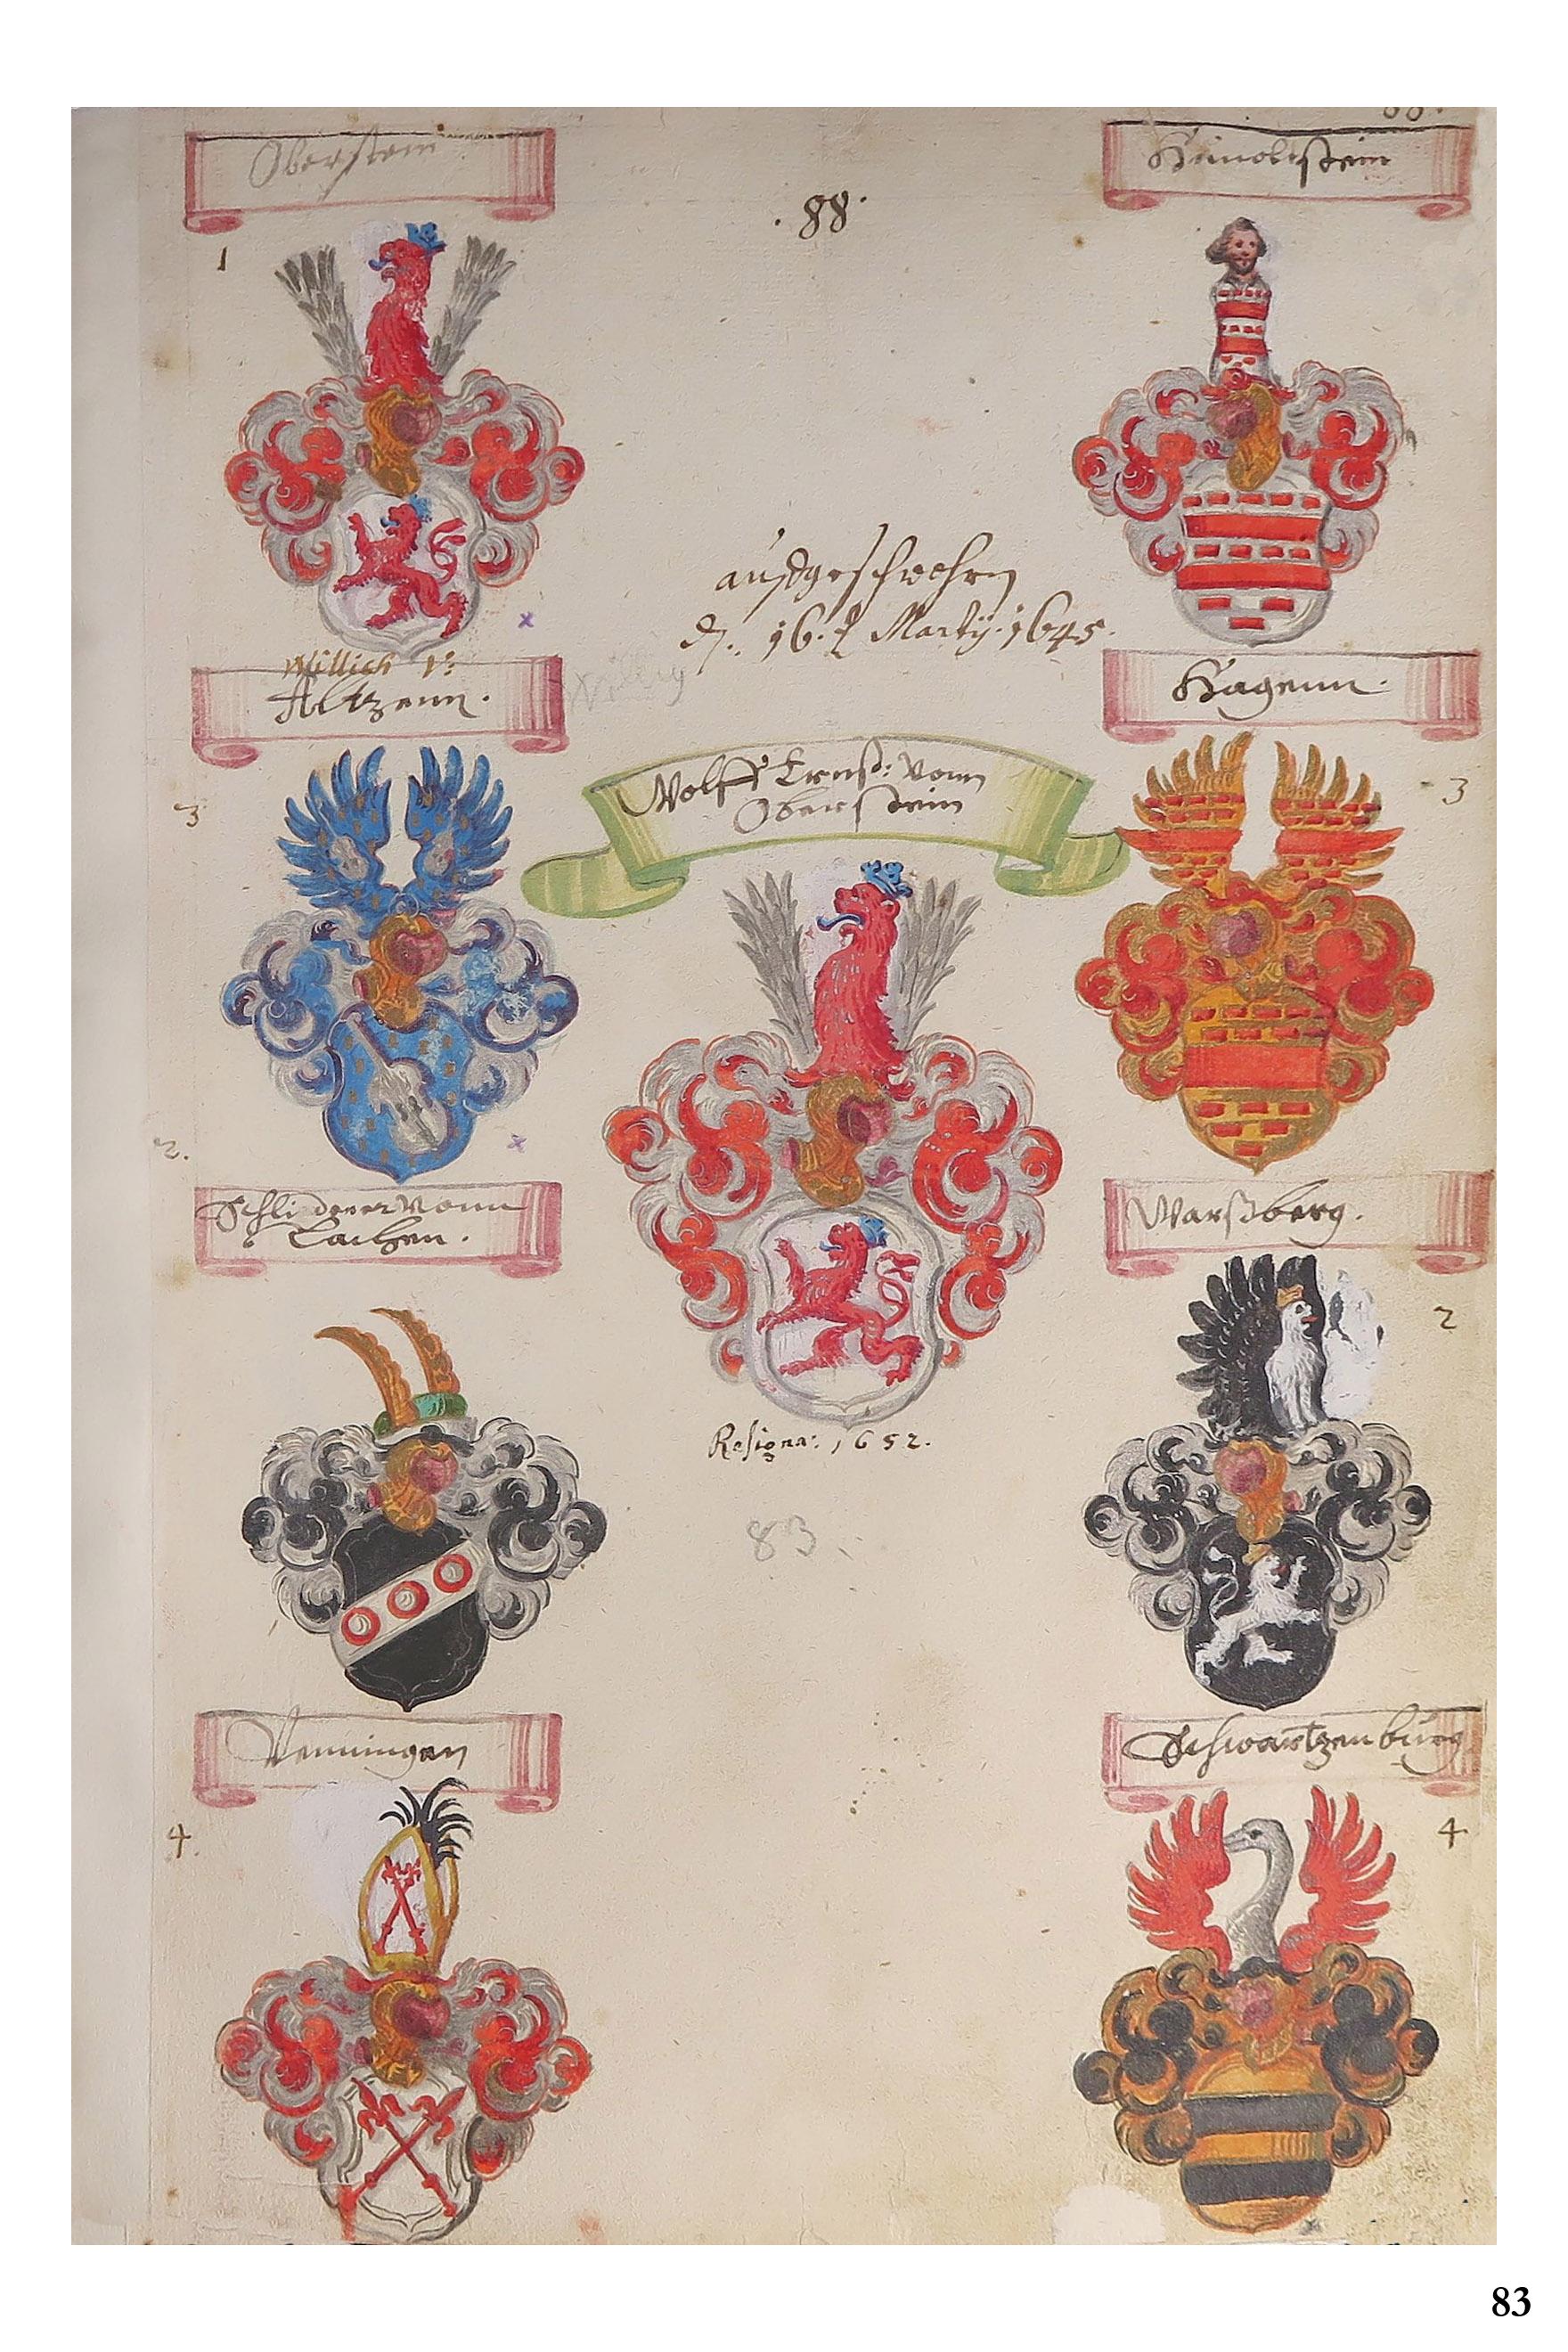 Oberstein
88.
Hunoltstein
. 88 .
1
ausgeschwohren
d. 16. Martij. 1645.
Willich v:
Altzenn.
Willig
Hagenn.
3
3
Wolff Ernst: vonn
Oberstein
2.
Schliderer vonn
Lachen.
Warsberg.
2
Resigna: 1652.
83.
Venningen
Schwartzenburg
4.
4
83